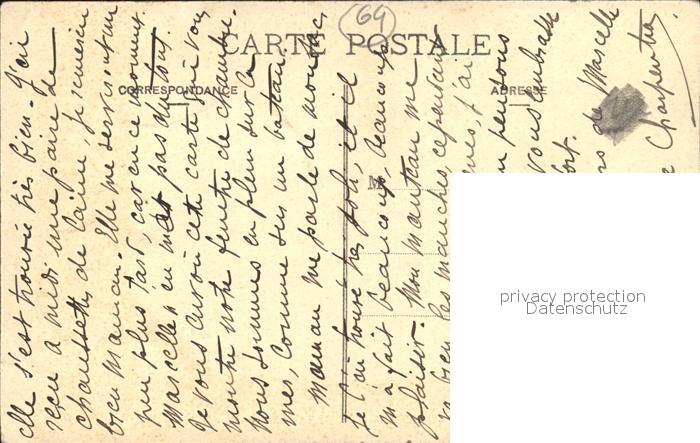 64
CARTE POSTALE
CORRESPONDANCE
ADRESSE
M
elle s'est trouvée très bien. J'ai
reçu à midi une paire de
chaussettes de laine, je remercie
bien maman. Elle me serviront un
peu plus tard, car en ce moment
Marcelle n'en met pas du tout.
Je vous envoie cette carte qui vous
montre notre fenêtre de chambre.
Nous sommes en plein sur la
mer, comme sur un bateau.
maman me parle de mon sac,
je l'ai trouvé très joli, et il
m'a fait beaucoup, beaucoup
plaisir. Mon manteau me
va bien, les manches, cependant
j'ai
pensons
vous embrasse
fort.
de Marcelle
Charpentier
privacy protection
Datenschutz